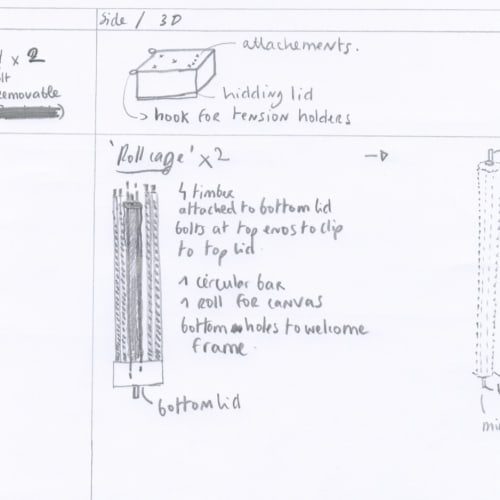 Side / 3D
x 2
removable
attachements.
hidding lid
hook for tension holders
'Roll cage' x 2
4 timber
attached to bottom lid
bolts at top ends to clip
to top lid.
1 circular bar
1 roll for canvas
bottom holes to welcome
frame.
bottom lid